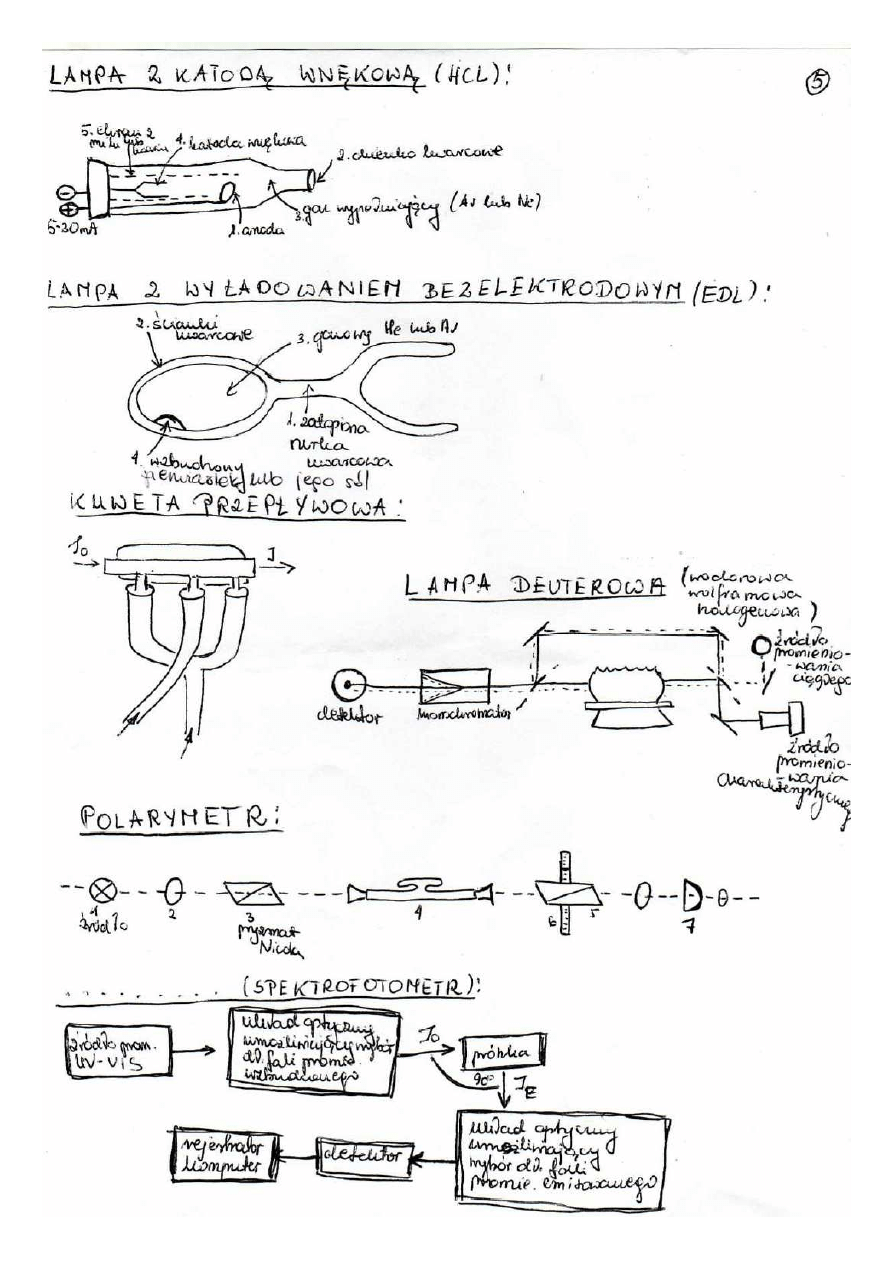 LAMPA Z KATODĄ WNĘKOWĄ (HCL):
5
5. ekran z
miki lub
4. katoda wnękowa
2. okienko kwarcowe
3. gaz wypełniający (Ar lub Ne)
1. anoda
5-30mA
LAMPA Z WYŁADOWANIEM BEZELEKTRODOWYM (EDL):
2. ścianki
kwarcowe
3. gazowy He lub Ar
1. zatopiona
rurka
kwarcowa
4. wzbudzony
pierwiastek lub jego sól
KUWETA PRZEPŁYWOWA:
I₀
I
LAMPA DEUTEROWA (wodorowa
wolframowa
halogenowa)
źródło
promienio-
-wania
ciągłego
detektor
monochromator
źródło
promienio-
wania
charakterystycznego
POLARYMETR:
1
źródło
2
3
pryzmat
Nicola
4
6
5
7
(SPEKTROFOTOMETR):
źródło prom.
UV-VIS
układ optyczny
umożliwiający wybór
dł. fali promie.
wzbudzonego
I₀
próbka
90°
I_E
układ optyczny
umożliwiający
wybór dł. fali
promie. emitowanego
detektor
rejestrator
komputer